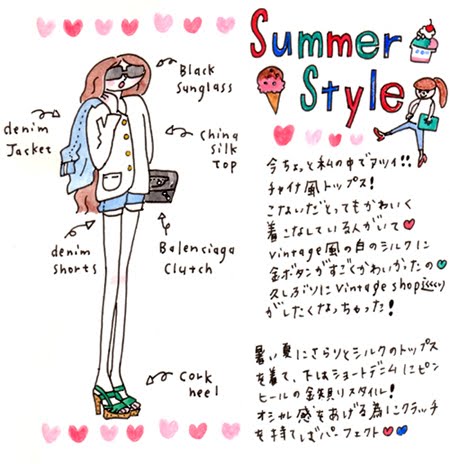 Summer
Style
Black
Sunglass
denim
Jacket
China
silk
Top
denim
shorts
Balenciaga
Clutch
Cork
heel
今ちょっと私の中でアツイ!!
チャイナ風トップス!
こないだとってもかわいく
着こなしている人がいて
vintage風の白のシルクに
金ボタンがすごくかわいかったの
久しぶりにvintage shop巡り
がしたくなっちゃった!
暑い夏にさらりとシルクのトップス
を着て、下はショートデニムにピン
ヒールの鉄則りスタイル!
オシャレ感をあげる為にクラッチ
を持てばパーフェクト